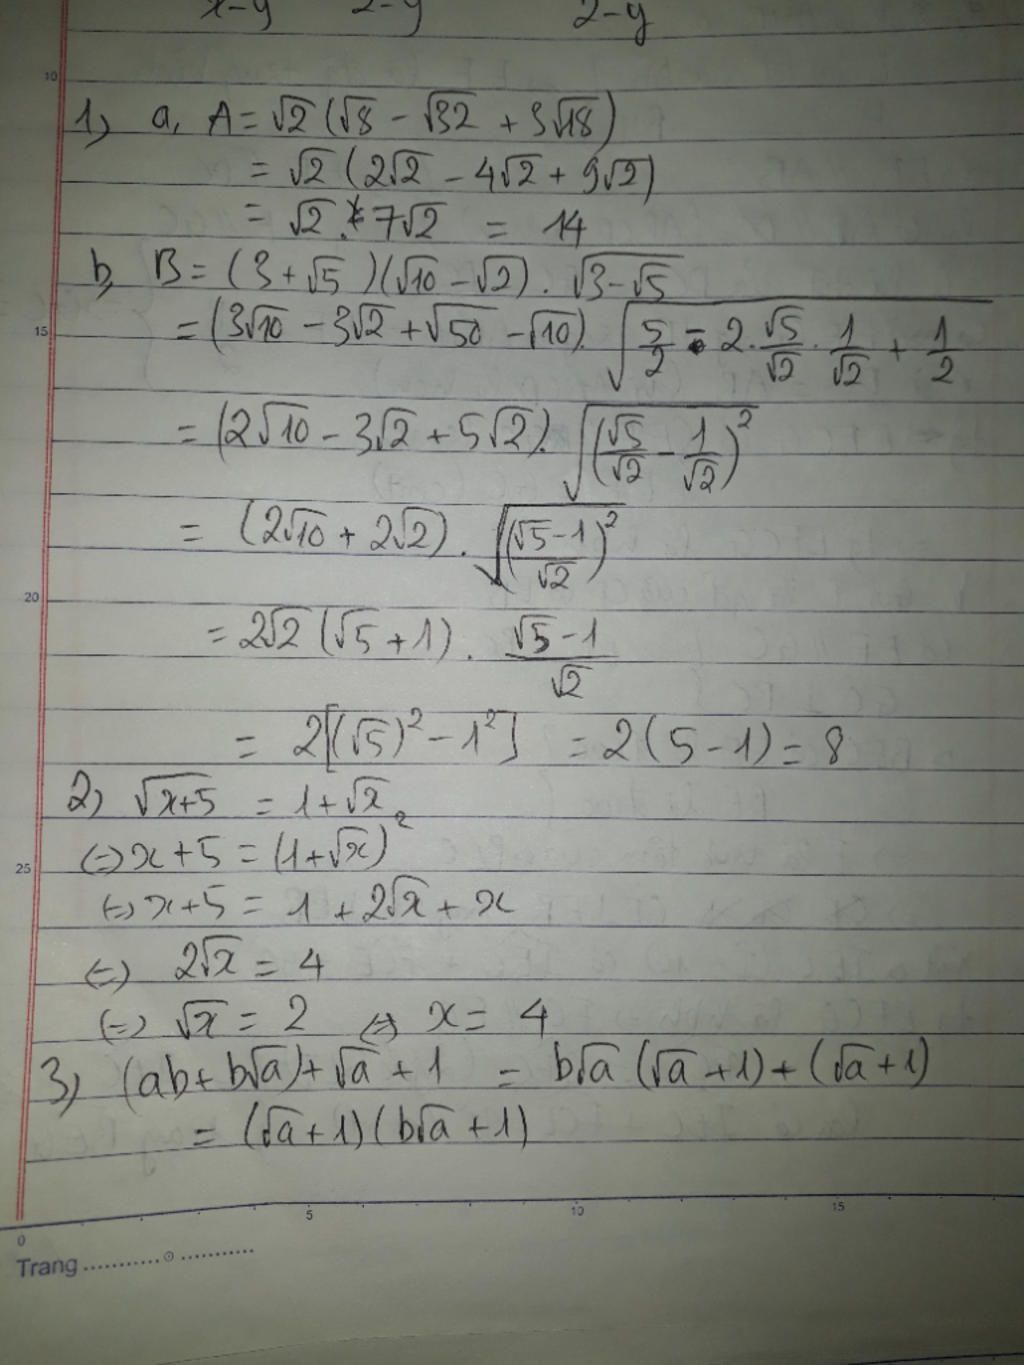 x-y 2-y 2-y
10
1, a, A = √2 (√8 - √32 + 3√18)
= √2 (2√2 - 4√2 + 9√2)
= √2 . 7√2 = 14
b, B = (3 + √5)(√10 - √2) . √(3-√5)
15
= (3√10 - 3√2 + √50 - √10) . √(5/2 - 2 . √5/√2 . 1/√2 + 1/2)
= (2√10 - 3√2 + 5√2) . √((√5/√2 - 1/√2)²)
= (2√10 + 2√2) . √(((√5-1)/√2)²)
20
= 2√2 (√5 + 1) . (√5-1)/√2
= 2[(√5)² - 1²] = 2(5-1) = 8
2) √(x+5) = 1+√x
⇔ x+5 = (1+√x)²
25
⇔ x+5 = 1 + 2√x + x
⇔ 2√x = 4
⇔ √x = 2 ⇔ x = 4
3) (ab + b√a) + √a + 1 = b√a (√a + 1) + (√a + 1)
= (√a + 1)(b√a + 1)
0 5 10 15
Trang